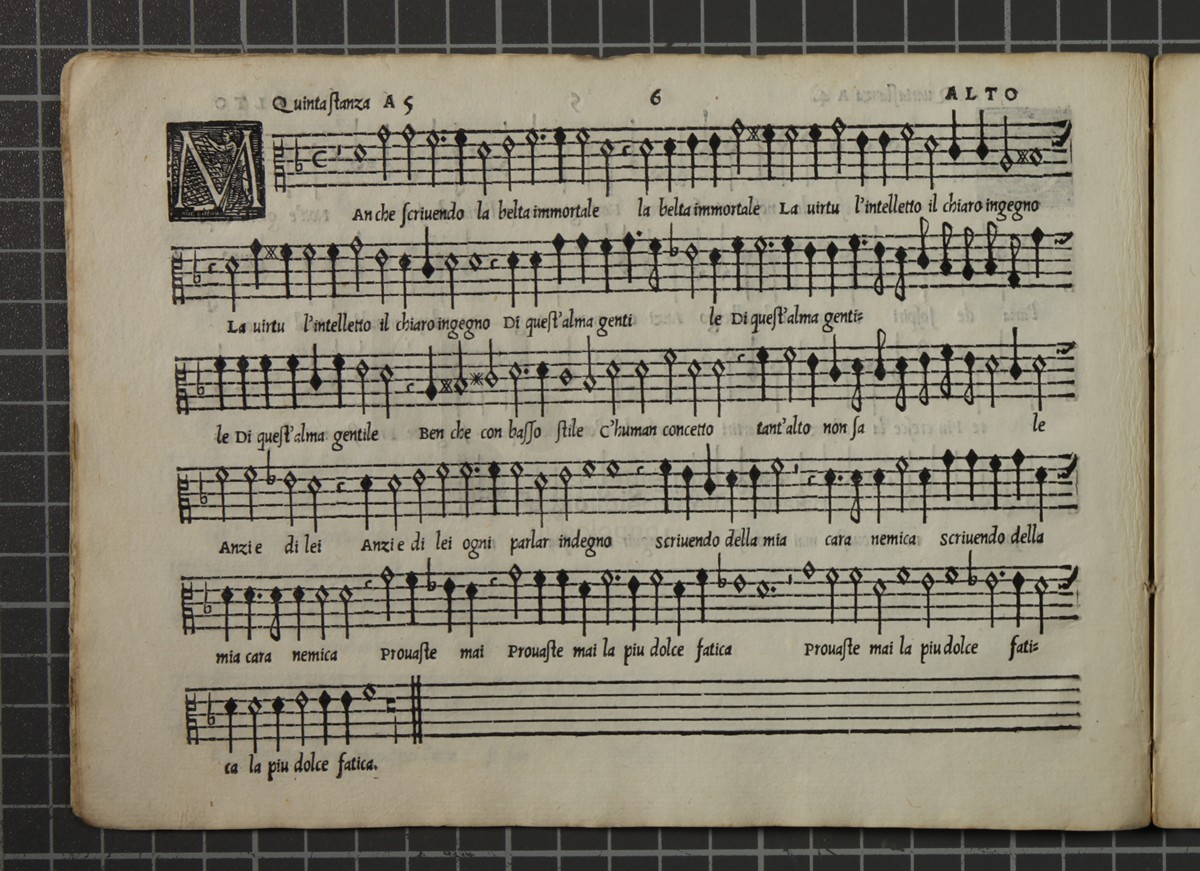 Quinta ſtanza A 5 6 ALTO
M An che ſcriuendo la belta immortale la belta immortale La uirtu l'intelletto il chiaro ingegno
La uirtu l'intelletto il chiaro ingegno Di queſt'alma genti le Di queſt'alma genti=
le Di queſt'alma gentile Ben che con baſſo ſtile C'human concetto tant'alto non ſa le
Anzi e di lei Anzi e di lei ogni parlar indegno scriuendo della mia cara nemica scriuendo della
mia cara nemica Prouaſte mai Prouaſte mai la piu dolce fatica Prouaſte mai la piu dolce fati=
ca la piu dolce fatica.